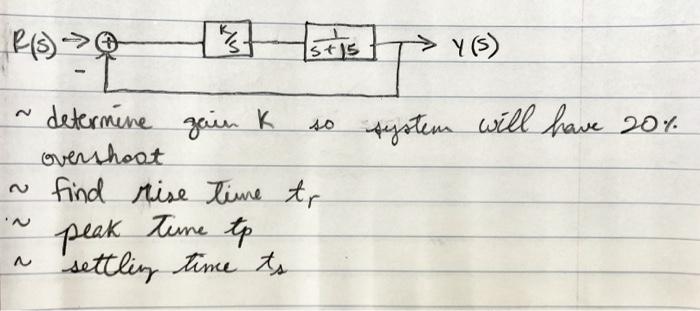 R(s) → + K/s 1/s+15 → Y(s)
-
~ determine gain K so system will have 20%
overshoot
~ find rise time tr
~ peak time tp
~ settling time ts